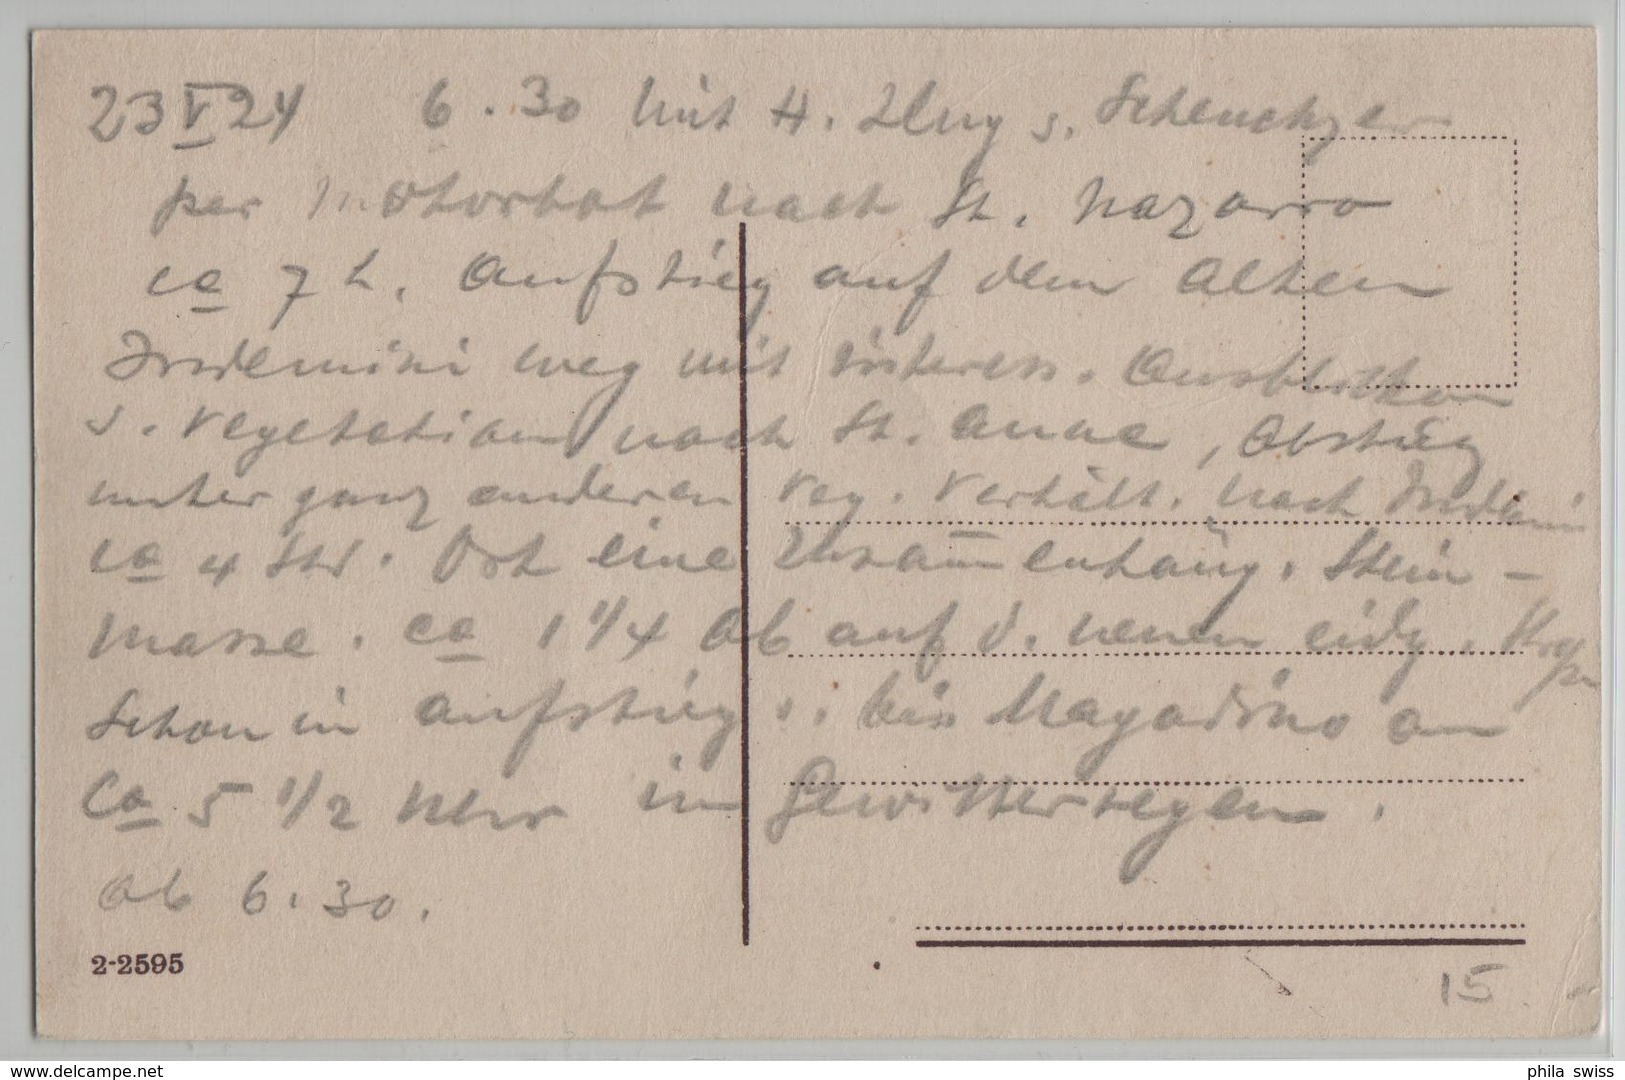 23 V 24 6.30 Mit H. Zbug u. Scheuchzer
per Motorbot nach St. Nazarro
ca 7 h. Aufstieg auf dem Alten
Indemini weg mit interess. Ausblicken
u. Vegetation nach St. Anna, Abstieg
unter ganz anderen Veg. Verhält. nach Indemini
ca 4 Std. Ort eine Zusammenhäng. Stein-
masse. ca 1 1/4 Ab auf d. neuen eidg.
Schon im aufstieg . bis Magadino an
Ca 5 1/2 Uhr im Gewitterregen.
Ab 6.30.
2-2595
15.-
delcampe.net
phila_swiss